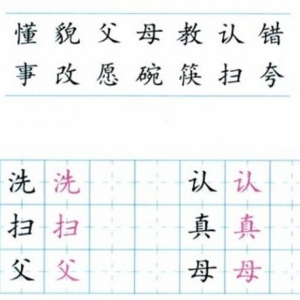 懂 貌 父 母 教 认 错
事 改 愿 碗 筷 扫 夸
洗 洗 认 认
扫 扫 真 真
父 父 母 母